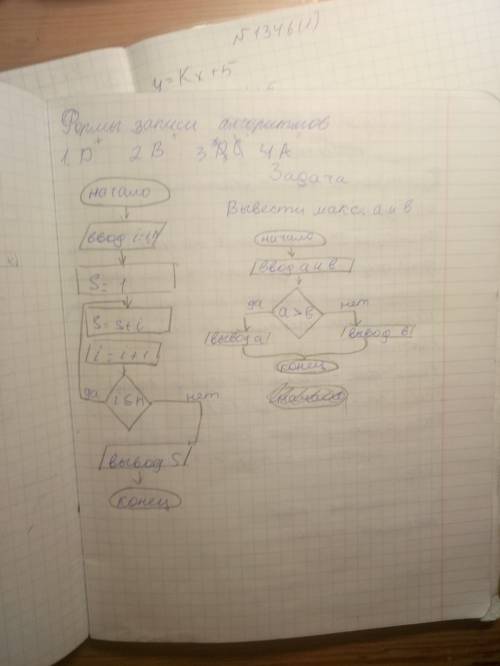 N 1346(1)
y=Kx+5
Формы записи алгоритмов
1. D + 2 B 3 4 A
Задача
Вывести макс. а и в
начало
ввод
S= 1
S= S+i
i = i+1
да
i ≤ n
нет
вывод S
конец
начало
ввод а и в
да
а > в
нет
вывод а
вывод в
конец